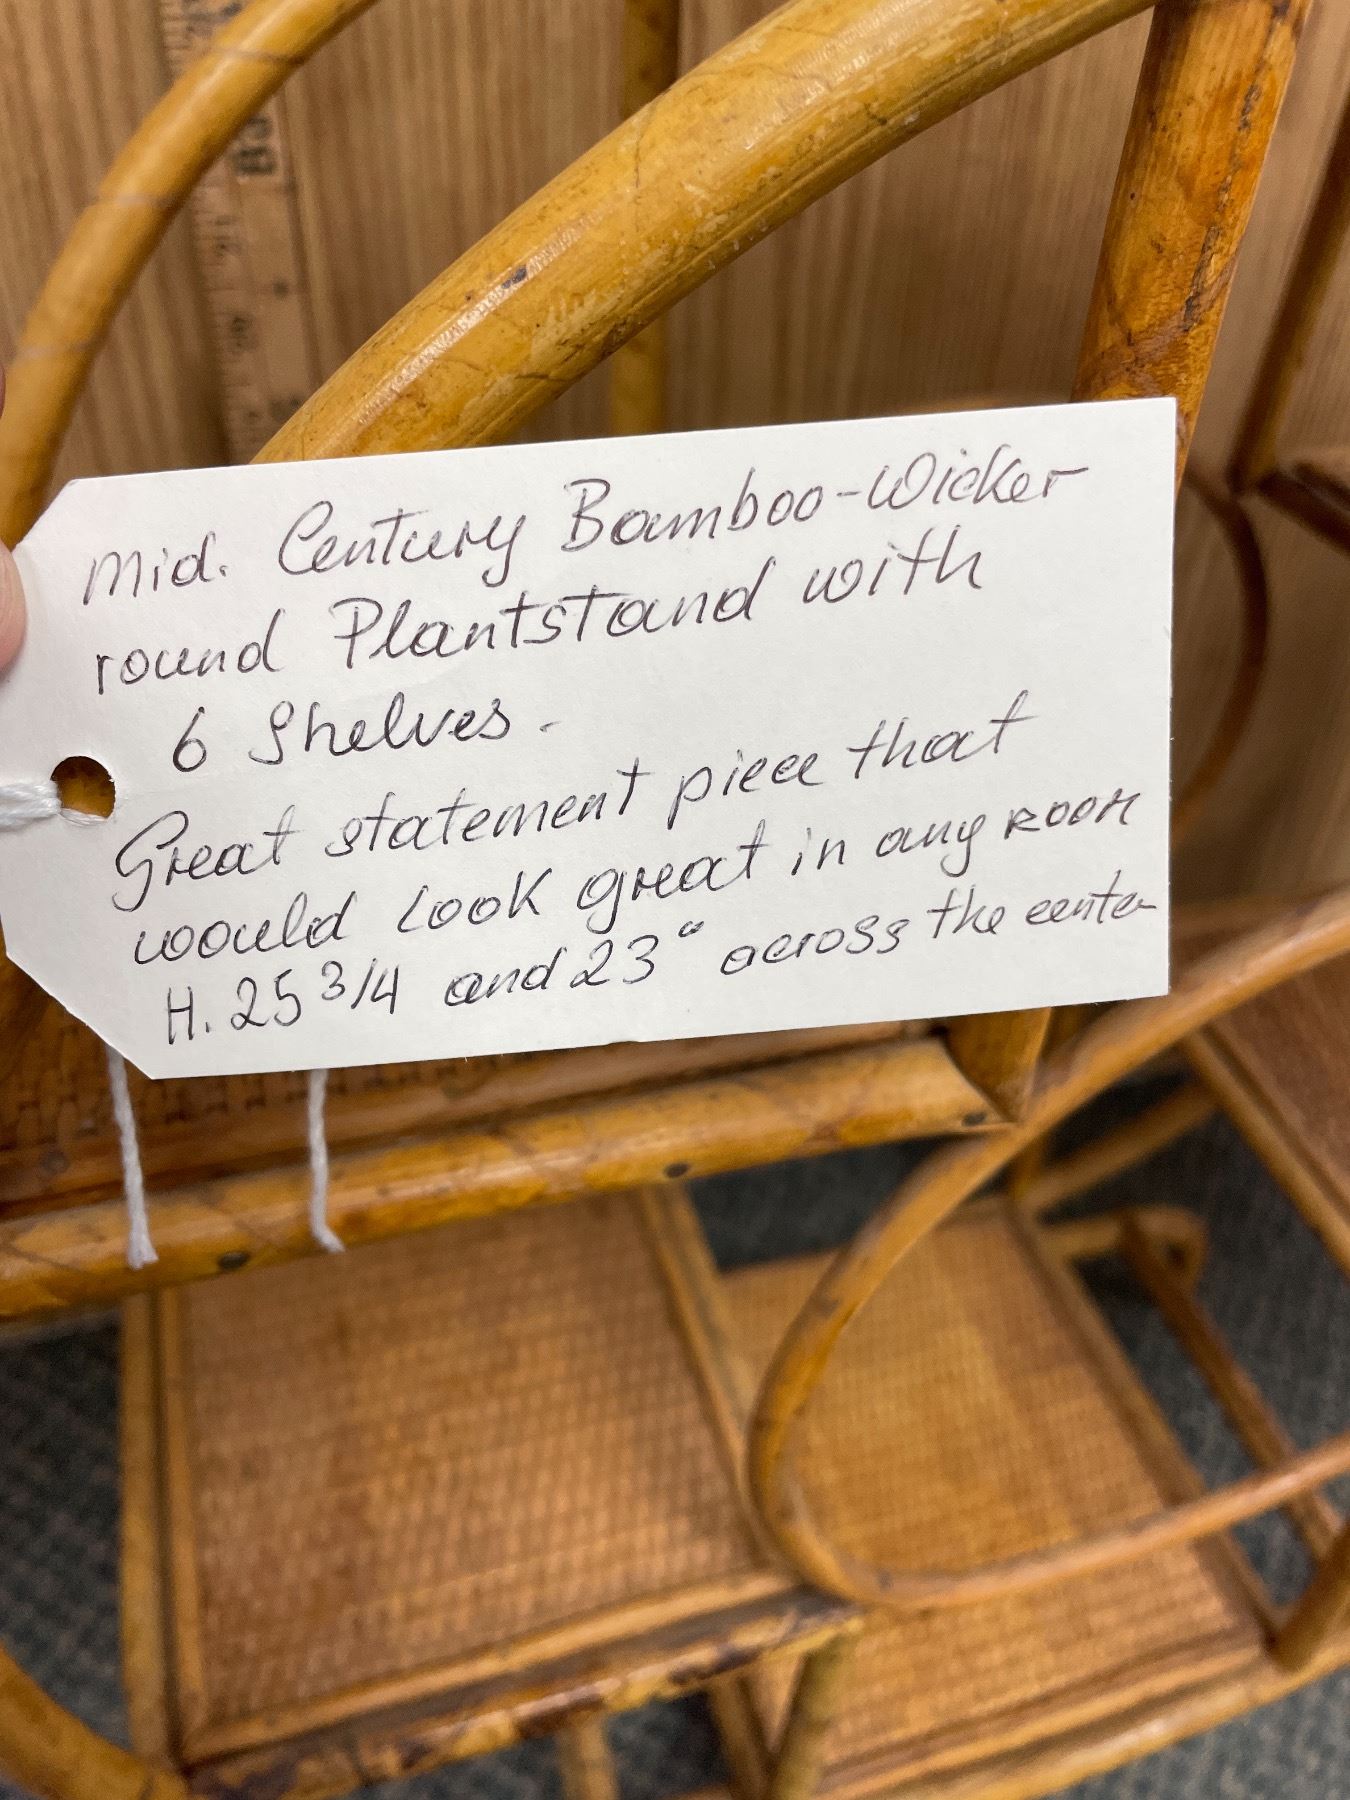 Mid. Century Bamboo-Wicker
round Plantstand with
6 Shelves.
Great statement piece that
would Look great in any room
H. 25 3/4 and 23" across the center